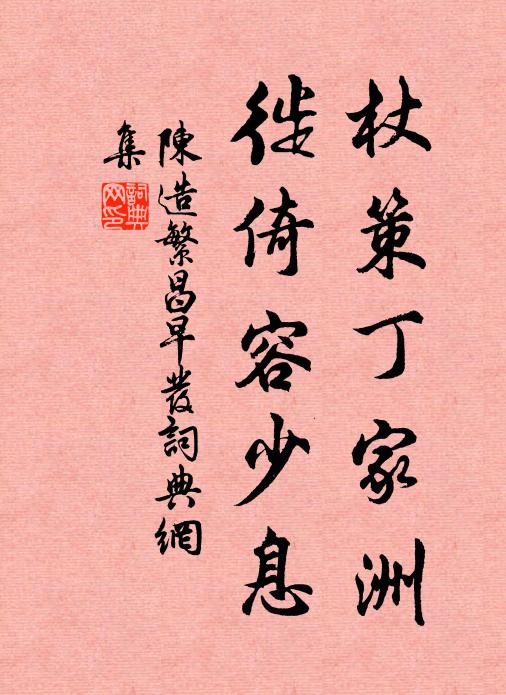 杖策丁家洲
徙倚容少息
陳造繁昌早發詞典網
集
詞典
网印